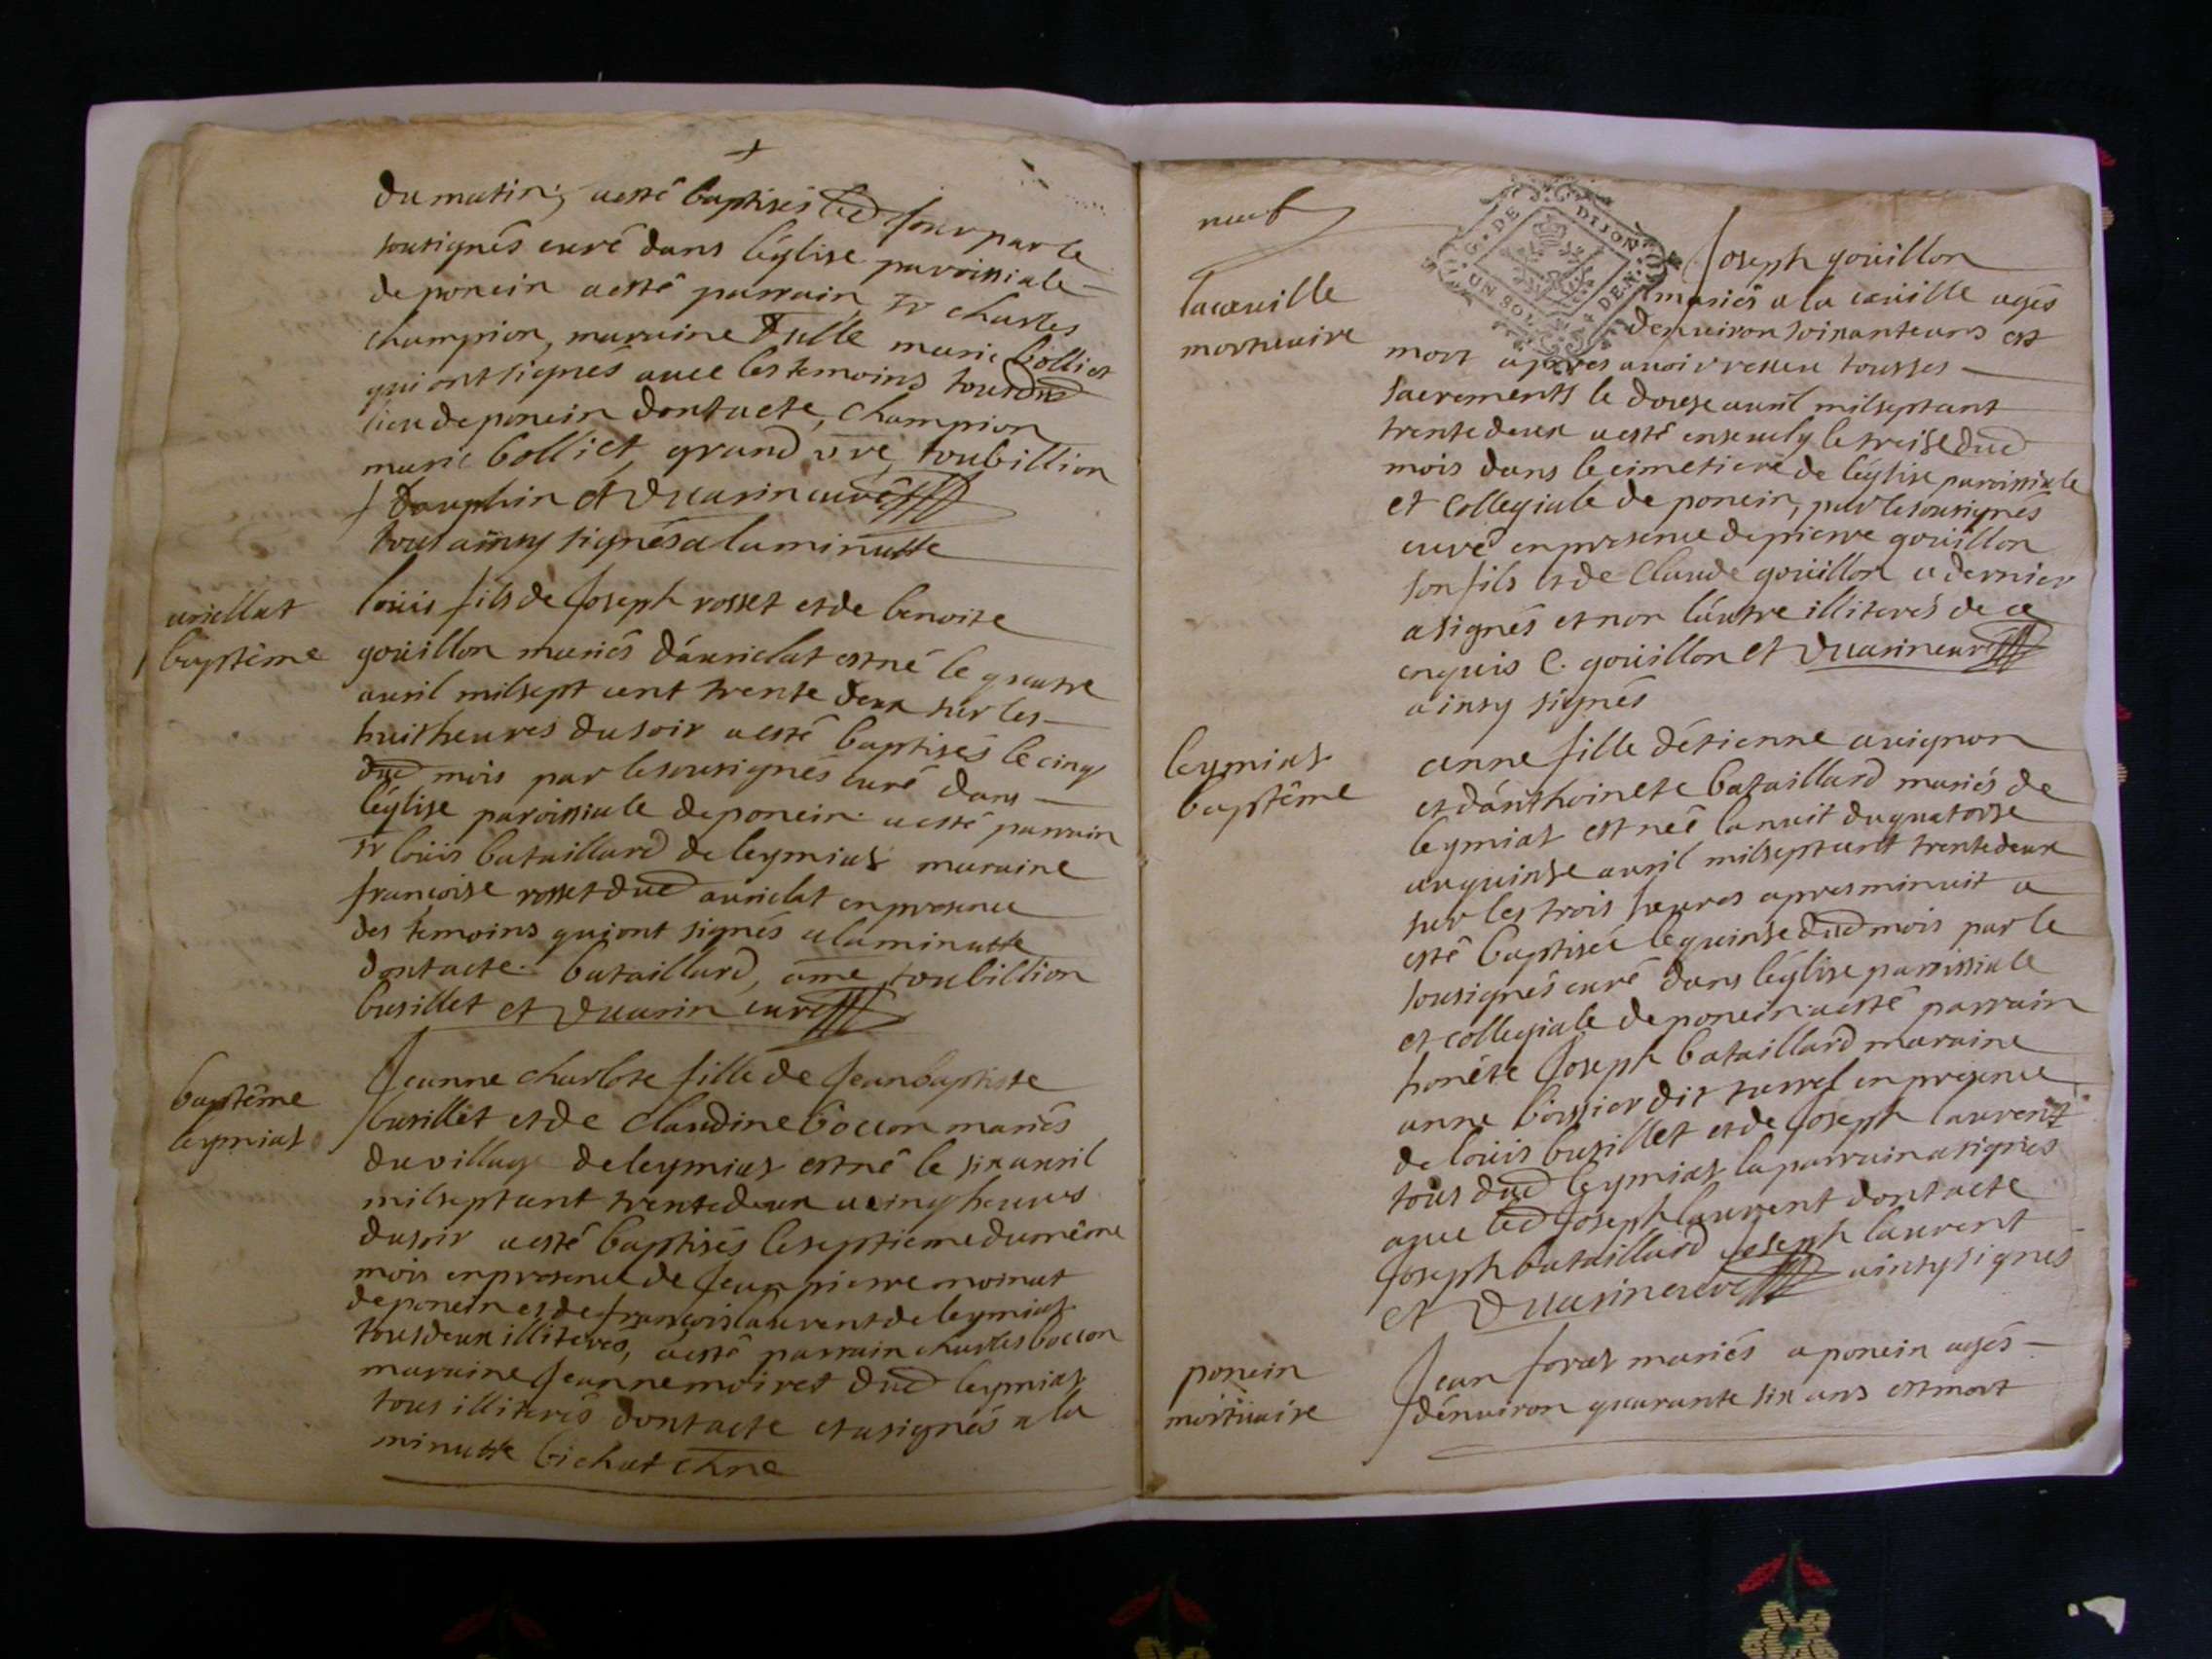 du matin, a esté baptisés led jour par le
sousignés curé dans léglise parroissiale
de poncin a esté parrain sr charles
champion, maraine dlle marie bolliet
qui ont signés avec les temoins tous dud
lieu de poncin dont acte, champion
marie bolliet, grand vre, toubillion
Dauphin et Duarin curé
tous ainsy signés a la minutte
avrillat
baptême
loüis fils de Joseph rosset et de benoite
goüillon mariés dáurielat est né le quatre
auril mil sept cent trente deux sur les
huit heures du soir a esté baptisés le cinq
dud mois par le sousignés curé dans
léglise paroissiale de poncin a esté parrain
sr loüis bataillard de leymiat maraine
francoise rosset dud aurielat en presence
des temoins qui ont signés a la minutte
dont acte. bataillard, ame, toubillion
busillet et Duarin curé
baptême
leymiat
Jeanne charlote fille de Jean baptiste
busillet et de Claudine bocion mariés
du village de leymiat est né le six auril
mil sept cent trente deux a cinq heures
du soir a esté baptisés le septieme du même
mois en presence de Jean pierre moinat
de poncin et de francois laurent de leymiat
tous deux illiterés, a esté parrain charles bocion
maraine Jeanne moiret dud leymiat
tous illiterés dont acte et a signés a la
minutte bichat chne
neuf
G. DE DIJON
UN SOL 4 DEN.
la cueille
mortuaire
Joseph goüillon
mariés a la cueille agés
denuiron soixante ans est
mort apres auoir resceu tous ses
sacrements le douse auril mil sept cent
trente deux a esté enseuely le treise dud
mois dans le cimetiere de léglise paroissiale
et collegiale de poncin, par le sousignés
curé en presence de pierre goüillon
son fils et de Claude goüillon a dernier
a signés et non láutre illiterés de ce
enquis C. goüillon et Duarin curé
ainsy signés
leymiat
baptême
anne fille détienne auignon
et dánthoinete bataillard mariés de
leymiat est neé la nuit du quatorse
au quinse auril mil sept cent trente deux
sur les trois heures apres minuit a
esté baptisée le quinse dud mois par le
sousignés curé dans léglise paroissiale
et collegiale de poncin a esté parrain
honête Joseph bataillard maraine
anne bossier dit en presence
de loüis busillet et de Joseph laurent
tous dud leymiat la parrain a signés
aque led Joseph laurent dont acte
Joseph bataillard Joseph laurent
et Duarin curé ainsy signés
poncin
mortuaire
Jean forat mariés a poncin agés
dénuiron quarante six ans est mort